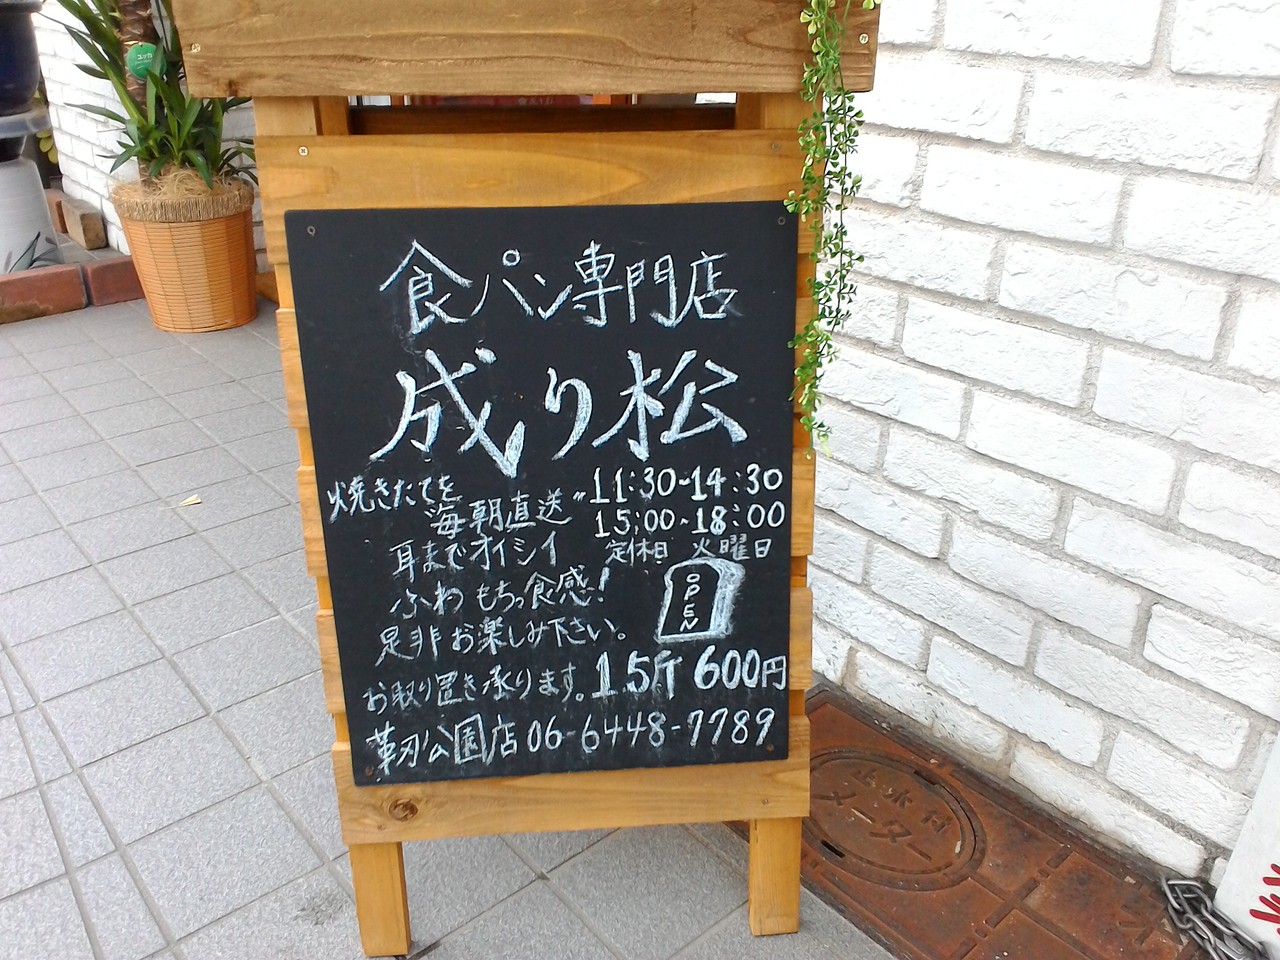 食パン専門店
成り松
焼きたてを
毎朝直送〃
11:30~14:30
15:00~18:00
定休日 火曜日
耳までオイシイ
ふわもちっ食感!
是非お楽しみ下さい。
OPEN
お取り置き承ります。1.5斤 600円
革刃公園店 06-6448-7789
止水栓
メーター